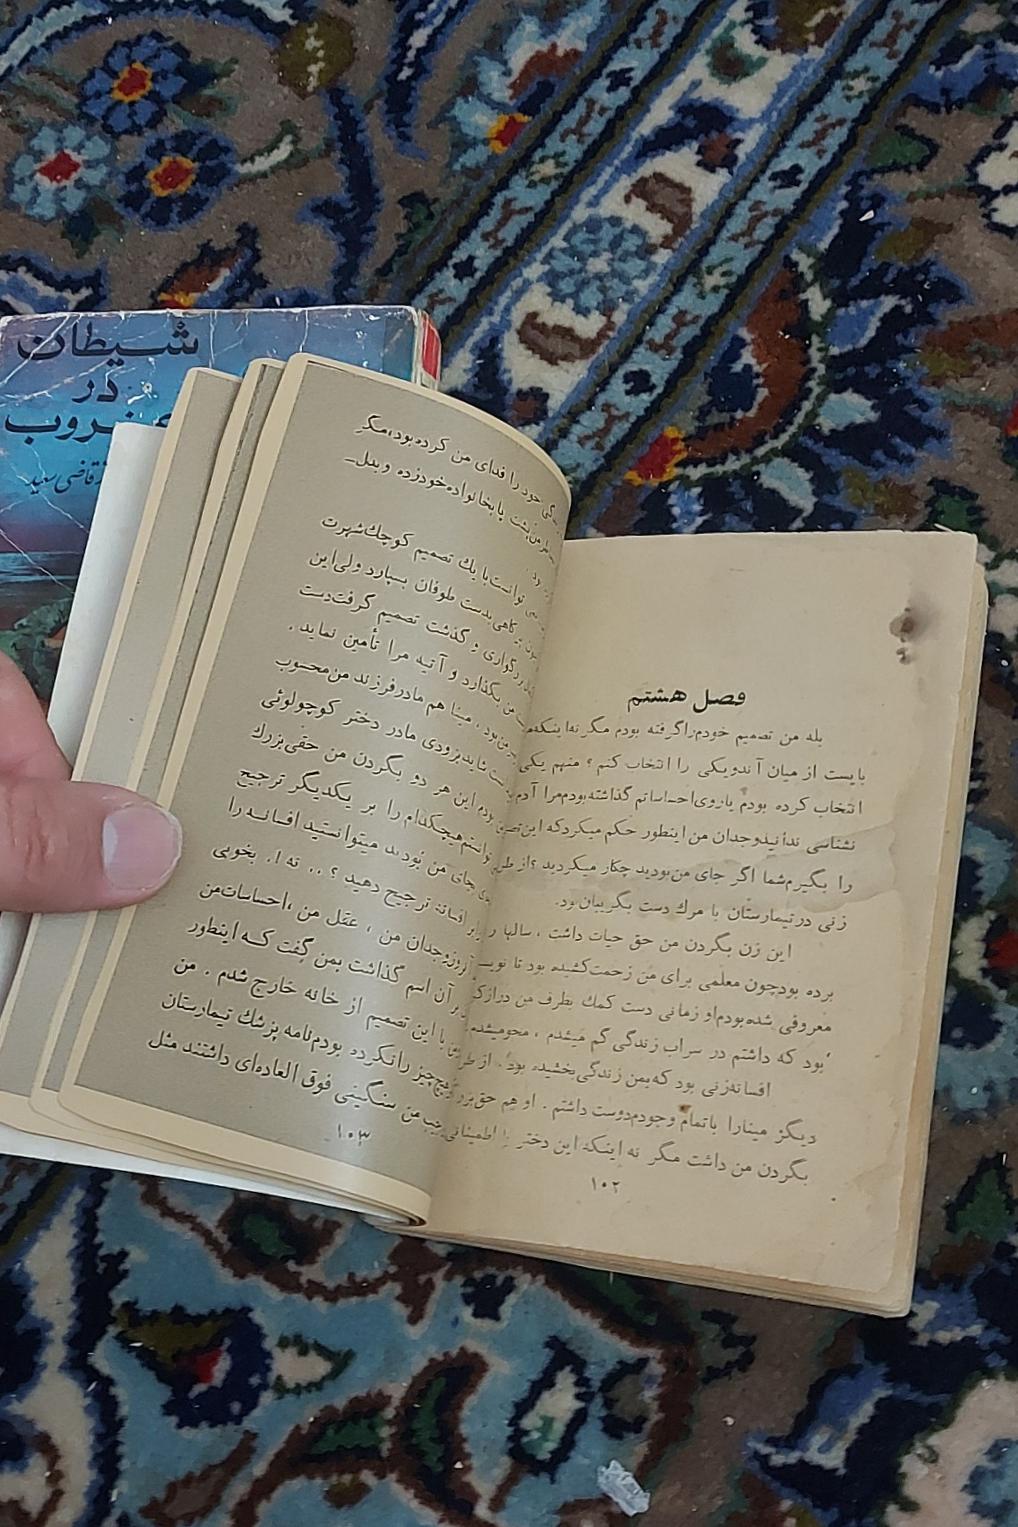 شیطان
در
غروب
قاضی سعید
فصل هشتم
بله من تصمیم خودم را گرفته بودم مگر نه اینکه
بایست از میان آندو یکی را انتخاب کنم ؟ منهم یکی
انتخاب کرده بودم پا روی احساساتم گذاشته بودم مرا آدم
نشناسی ندانید وجدان من اینطور حکم میکرد که این تصمیم
را بگیرم شما اگر جای من بودید چکار میکردید ؟ از طر
زنی در تیمارستان با مرگ دست بگریبان بود.
این زن بگردن من حق حیات داشت ، سالها ر
برده بود چون معلمی برای من زحمت کشیده بود تا نویس
معروفی شده بودم او زمانی دست کمک بطرف من دراز ک
بود که داشتم در سراب زندگی گم میشدم ، محو میشدم
افسانه زنی بود که بمن زندگی بخشیده بود . از طر
دیگر مینا را با تمام وجودم دوست داشتم . او هم حق بزر
بگردن من داشت مگر نه اینکه این دختر با اطمینانی
۱۰۲
زندگی خود را فدای من کرده بود ، مگر
من پشت پا بخانواده خود زده و بدل-
توانست با یک تصمیم کوچک شهرت
گاهی بدست طوفان بسپارد ولی این
بزرگواری و گذشت تصمیم گرفت دست
من بگذارد و آتیه مرا تأمین نماید .
من بود . مینا هم مادر فرزند من محسوب
شاید بزودی مادر دختر کوچولوئی
بودم این هر دو بگردن من حقی بزرگ
توانستم هیچکدام را بر یکدیگر ترجیح
بجای من بودید میتوانستید افسانه را
افسانه ترجیح دهید ؟ .. نه !. بخوبی
آنروز وجدان من ، عقل من ، احساسات من
بر آن اسم گذاشت بمن گفت که اینطور
با این تصمیم از خانه خارج شدم . من
هیچ چیز را نکرده بودم نامه پزشک تیمارستان
جیب من سنگینی فوق العاده ای داشتند مثل
۱۰۳